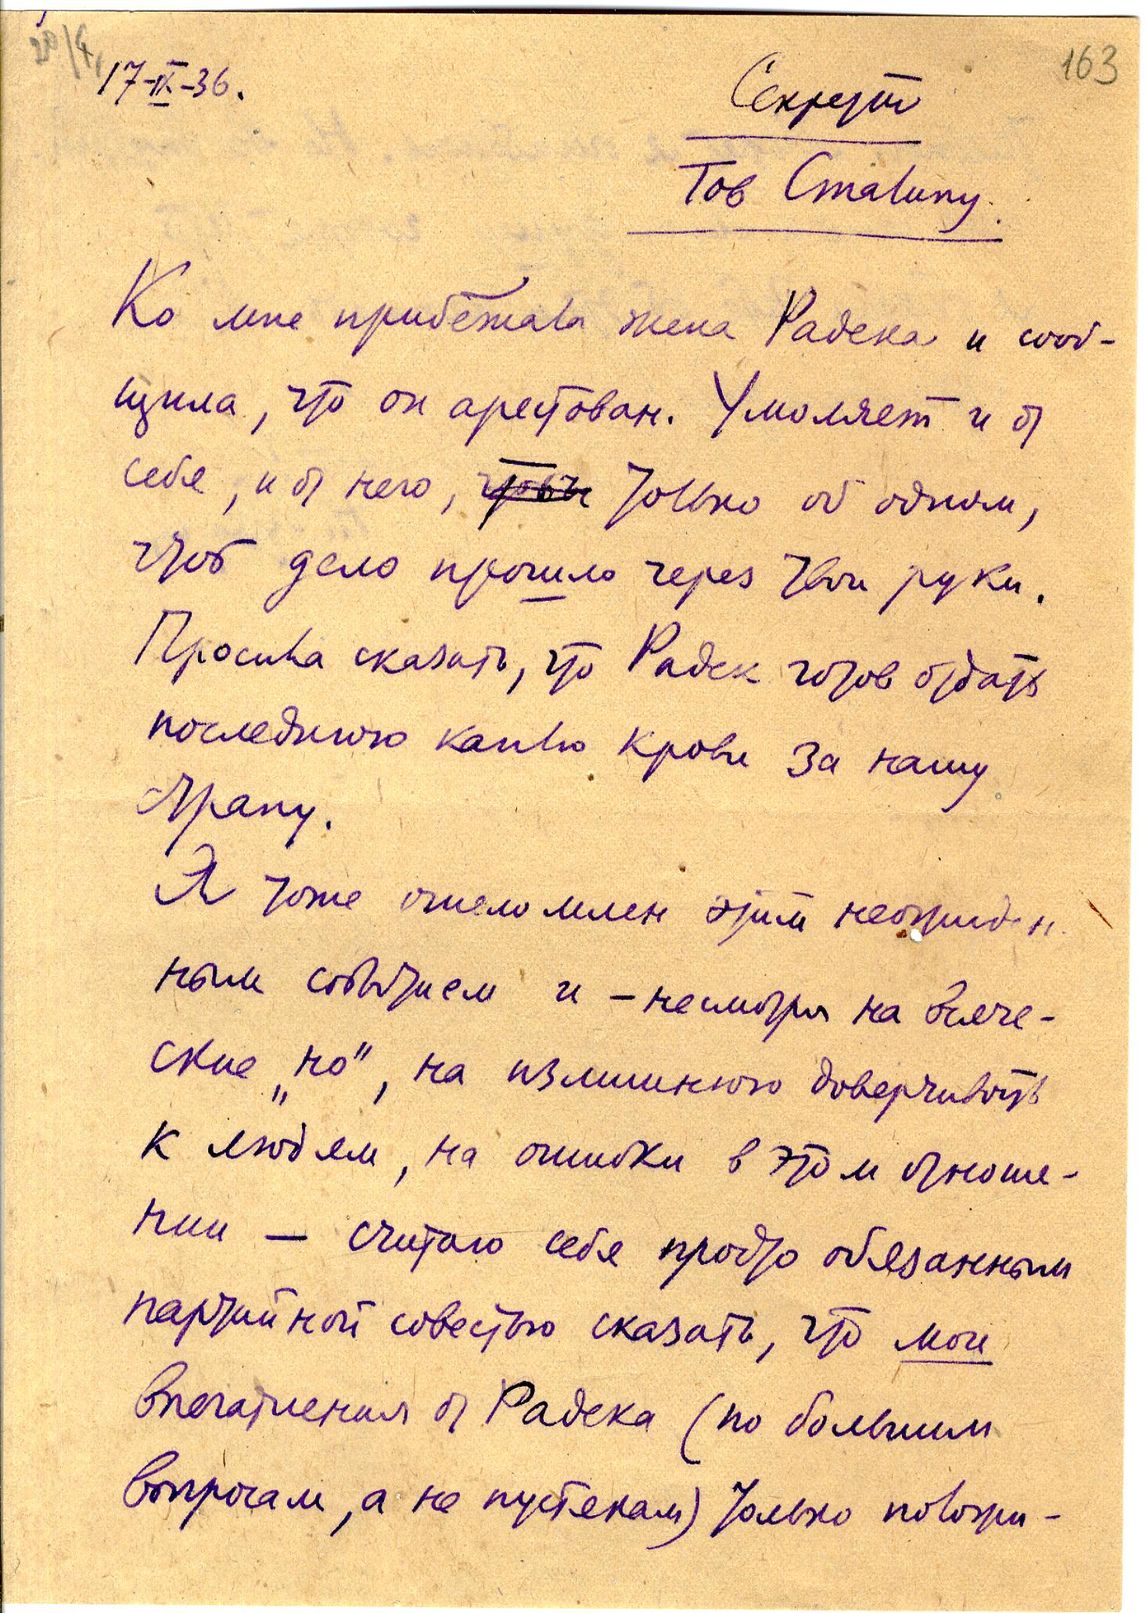 163
17-IX-36.
Секретно
Тов Сталину.
Ко мне прибежала жена Радека и сооб-
щила, что он арестован. Умоляет и от
себя, и от него, чтобы только об одном,
чтоб дело прошло через твои руки.
Просила сказать, что Радек готов отдать
последнюю каплю крови за нашу
страну.
Я тоже ошеломлен этим неожидан
ным событием и – несмотря на всяче-
ские „но", на излишнюю доверчивость
к людям, на ошибки в этом отноше-
нии — считаю себя просто обязанным
партийной совестью сказать, что мои
впечатления от Радека (по большим
вопросам, а не пустякам) только положи-